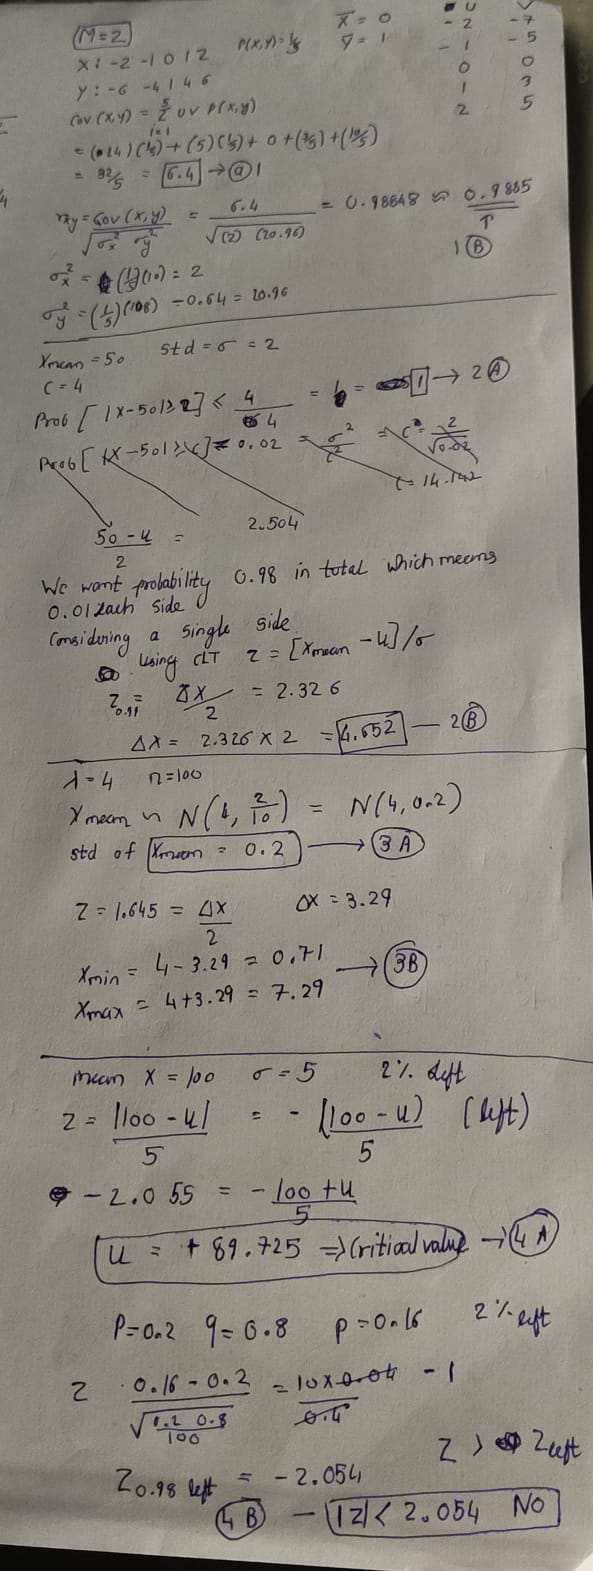 M=2
X: -2 -1 0 1 2 P(x,y)=1/5 X̄ = 0 U V
Y: -6 -4 1 4 6 Ȳ = 1 -2 -7
-1 -5
0 0
1 3
2 5
Cov(x,y) = Σ UV P(x,y)
i=1
= (14)(1/5) + (5)(1/5) + 0 + (3/5) + (10/5)
= 32/5 = 6.4 → a 1
rxy = Cov(x,y) / √σx² σy² = 6.4 / √(2) (20.96) = 0.98848 ≈ 0.9885
1 B
σx² = (1/5)(10) = 2
σy² = (1/5)(108) - 0.64 = 20.96
Xmean = 50 std = σ = 2
C = 4
Prob [ |X-50| ≥ 2] ≤ 4/4 = 1 → 2 A
Prob [ |X-50| ≥ C] = 0.02 = σ²/C² = C = 2/√0.02
C = 14.142
50-u / 2 = 2.504
We want probability 0.98 in total which means
0.01 each side
Considering a single side
Using CLT Z = [Xmean - u]/σ
Z0.99 = ΔX/2 = 2.326
ΔX = 2.326 x 2 = 4.652 — 2 B
λ=4 n=100
Xmean ~ N(4, 2/10) = N(4, 0.2)
std of Xmean = 0.2 → 3 A
Z = 1.645 = ΔX/2 ΔX = 3.29
Xmin = 4 - 3.29 = 0.71
Xmax = 4 + 3.29 = 7.29 → 3B
mean X = 100 σ = 5 2% left
Z = |100 - u| / 5 = - (100 - u) / 5 (left)
-2.055 = -100 + u / 5
u = + 89.725 ⇒ Critical value → 4 A
P=0.2 q=0.8 p=0.16 2% left
Z 0.16 - 0.2 / √(0.2 0.8 / 100) = 10 x 0.04 / 0.4 - 1
Z > Zleft
Z0.98 left = -2.054
4 B — |Z| < 2.054 NO